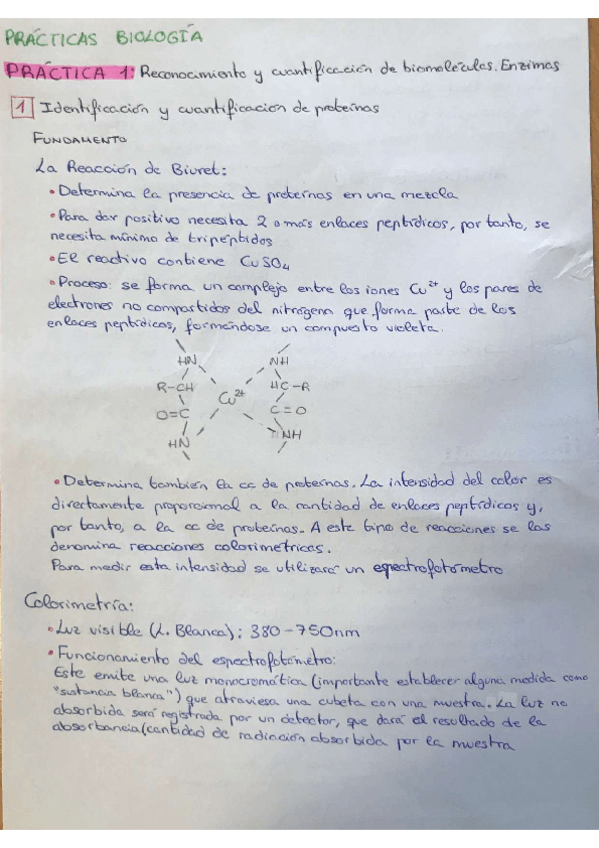 PRÁCTICAS BIOLOGÍA
PRÁCTICA 1: Reconocimiento y cuantificación de biomoléculas. Enzimas
1 Identificación y cuantificación de proteínas
FUNDAMENTO
La Reacción de Biuret:
• Determina la presencia de proteínas en una mezcla
• Para dar positivo necesita 2 o más enlaces peptídicos, por tanto, se
necesita mínimo de tripéptidos
• El reactivo contiene CuSO4
• Proceso: se forma un complejo entre los iones Cu2+ y los pares de
electrones no compartidos del nitrógeno que forma parte de los
enlaces peptídicos, formándose un compuesto violeta.
HN NH
R-CH Cu2+ HC-R
O=C C=O
HN NH
• Determina también la cc de proteínas. La intensidad del color es
directamente proporcional a la cantidad de enlaces peptídicos y,
por tanto, a la cc de proteínas. A este tipo de reacciones se las
denomina reacciones colorimétricas.
Para medir esta intensidad se utilizará un espectrofotómetro
Colorimetría:
• Luz visible (L. Blanca): 380-750nm
• Funcionamiento del espectrofotómetro:
Este emite una luz monocromática (importante establecer alguna medida como
"sustancia blanca") que atraviesa una cubeta con una muestra. La luz no
absorbida será registrada por un detector, que dará el resultado de la
absorbancia (cantidad de radiación absorbida por la muestra